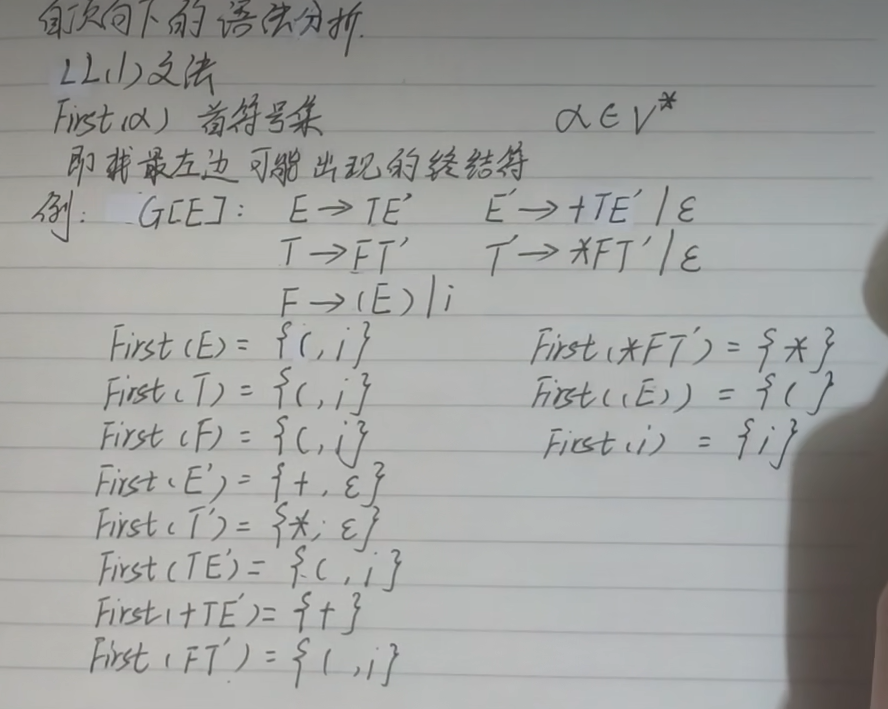 自顶向下的语法分析.
LL(1)文法
First(α) 首符号集 α∈V*
即找最左边可能出现的终结符
例: G[E]: E→TE' E'→+TE'|ε
T→FT' T'→*FT'|ε
F→(E)|i
First(E)={(,i} First(*FT')={*}
First(T)={(,i} First((E))={(}
First(F)={(,i} First(i)={i}
First(E')={+,ε}
First(T')={*,ε}
First(TE')={(,i}
First(+TE')={+}
First(FT')={(,i}